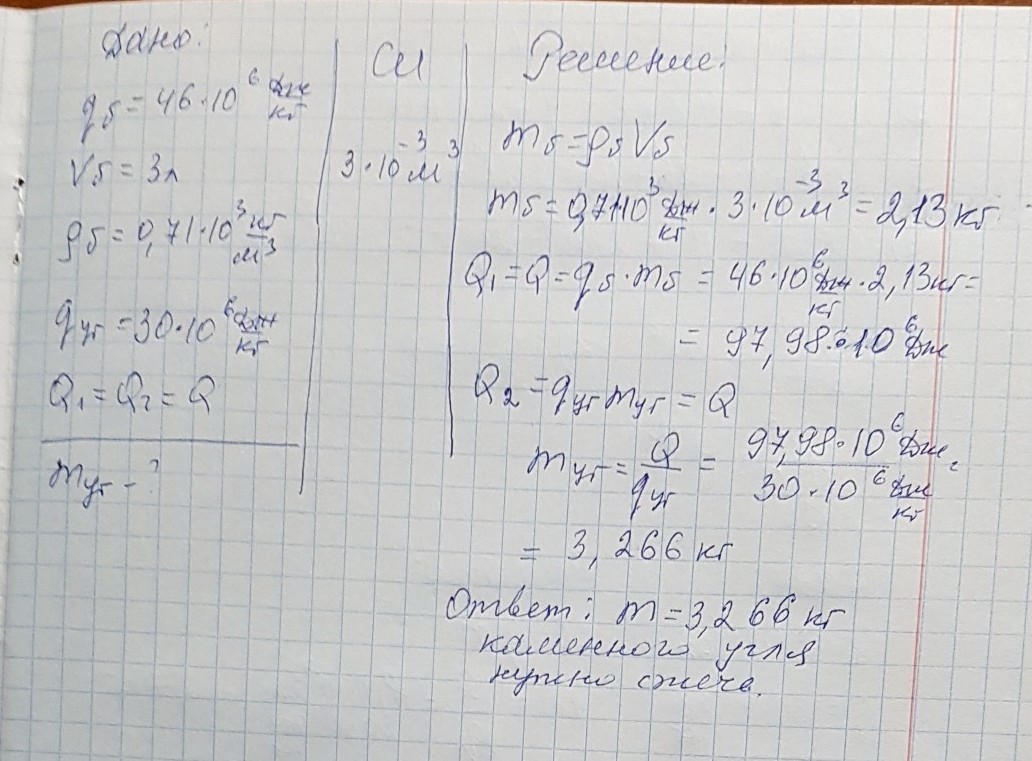 Дано:
qб = 46·10⁶ Дж/кг
Vб = 3л
ρб = 0,71·10³ кг/м³
qуг = 30·10⁶ Дж/кг
Q₁ = Q₂ = Q
mуг - ?
СИ
3·10⁻³ м³
Решение:
mб = ρб Vб
mб = 0,71·10³ Дж/кг · 3·10⁻³ м³ = 2,13 кг
Q₁ = Q = qб · mб = 46·10⁶ Дж/кг · 2,13 кг =
= 97,98·10⁶ Дж
Q₂ = qуг mуг = Q
mуг = Q/qуг = 97,98·10⁶ Дж / 30·10⁶ Дж/кг =
= 3,266 кг
Ответ: m = 3,266 кг
каменного угля
нужно сжечь.